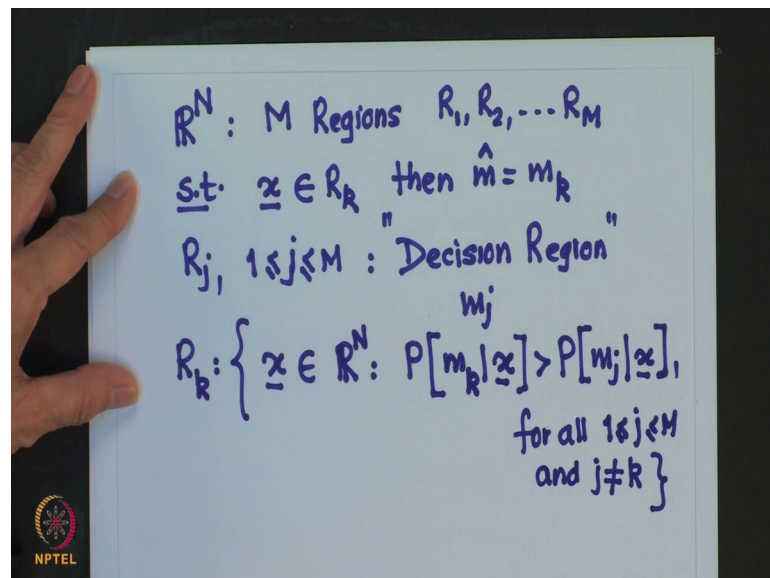 ℝᴺ : M Regions R₁, R₂, ... R_M
s.t. x ∈ R_k then m̂ = m_k
R_j, 1≤j≤M : "Decision Region"
m_j
R_k : { x ∈ ℝᴺ : P[m_k|x] > P[m_j|x],
for all 1≤j≤M
and j≠k }
NPTEL